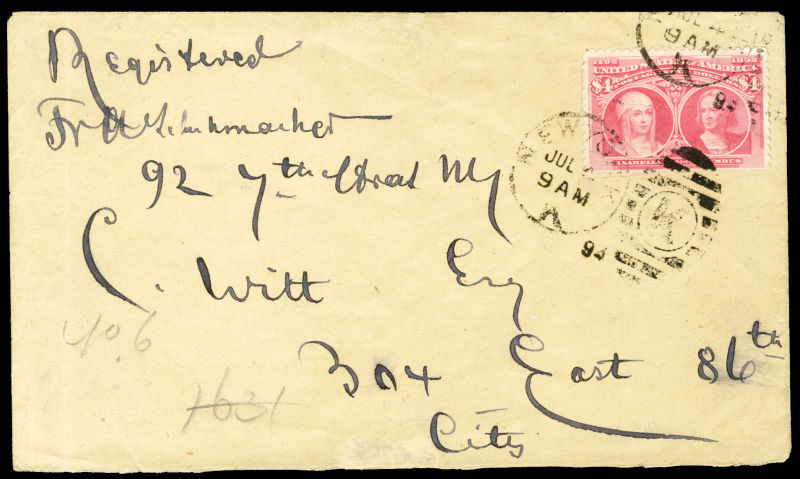 Registered
Fr. A. Schuhmacher
92 7th Street NY
C. Witt Esq
304 East 86th
City
No. 6
1631
1492 1892
UNITED STATES OF AMERICA
POSTAGE DOLLARS
$4 $4
ISABELLA COLUMBUS
JUL 4
9 AM
K
93
NEW
JUL
9 AM
K
93
K